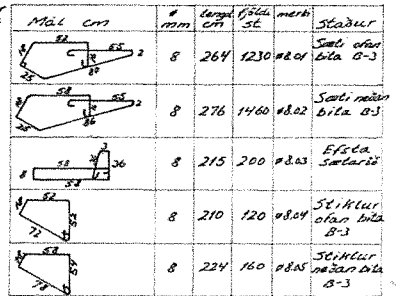 Mál cm ø mm lengd cm fjöldi st merki Staður
52 55 2 25 87 8 264 1230 ø8.01 Sæti ofan bita B-3
58 55 2 25 86 8 276 1460 ø8.02 Sæti neðan bita B-3
3 36 58 8 58 8 215 200 ø8.03 Efsta sætaröð
52 52 72 8 210 120 ø8.04 Stiklur ofan bita B-3
58 54 78 8 224 160 ø8.05 Stiklur neðan bita B-3